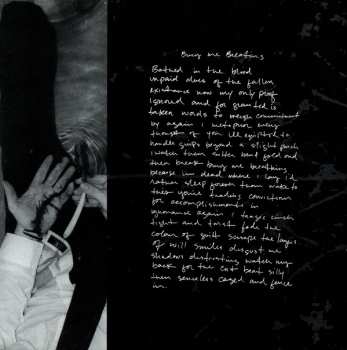 Bury me Breathing
Bathed in the blood
unpaid dues of the fallen
existance now my only proof
ignored and for granted is
taken words to merge commitment
by again I metaphor every
thought of you ill equipted to
handle grips beyond a slight
I watch them bend fold and
then break bury me breathing
because im dead where I lay id
rather sleep forever than wake to
trading conviction
for accomplishments in
ignorance again I tragic cinch
tight and twist fade the
colour of guilt scrape the
of will smiles disgust me
shadows watch my
back for the cut beat silly
then senseless caged and fence
in.